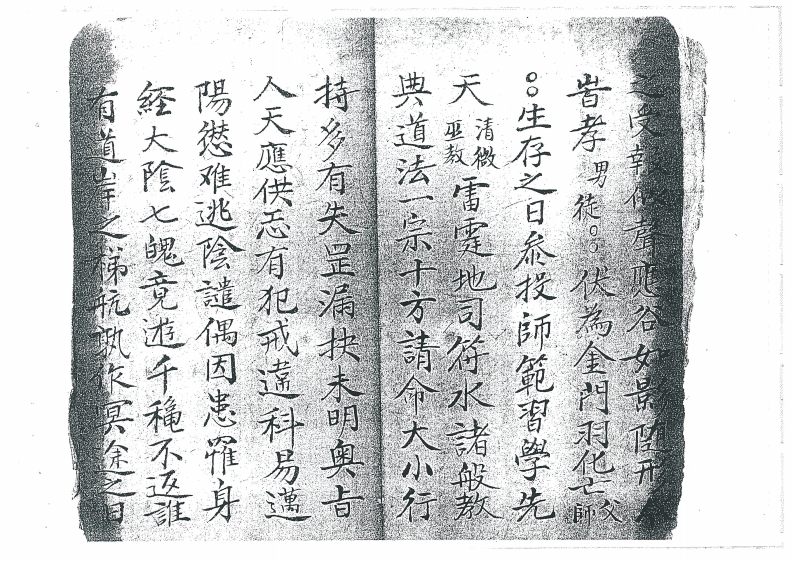 之受報似聲應谷如影随形今
昔孝男徒○○伏為金門羽化亡父師
○○生存之日叅投師範習學先
天清微巫教雷霆地司符水諸般教
典道法一宗十方請命大小行
持多有失罡漏抉未明奥㫖
人天應供忑有犯戒違科易邁
陽愆难逃陰譴偶因患罹身
經大陰七魄竟遊千龝不返誰
有道岸之梯航孰作冥途之